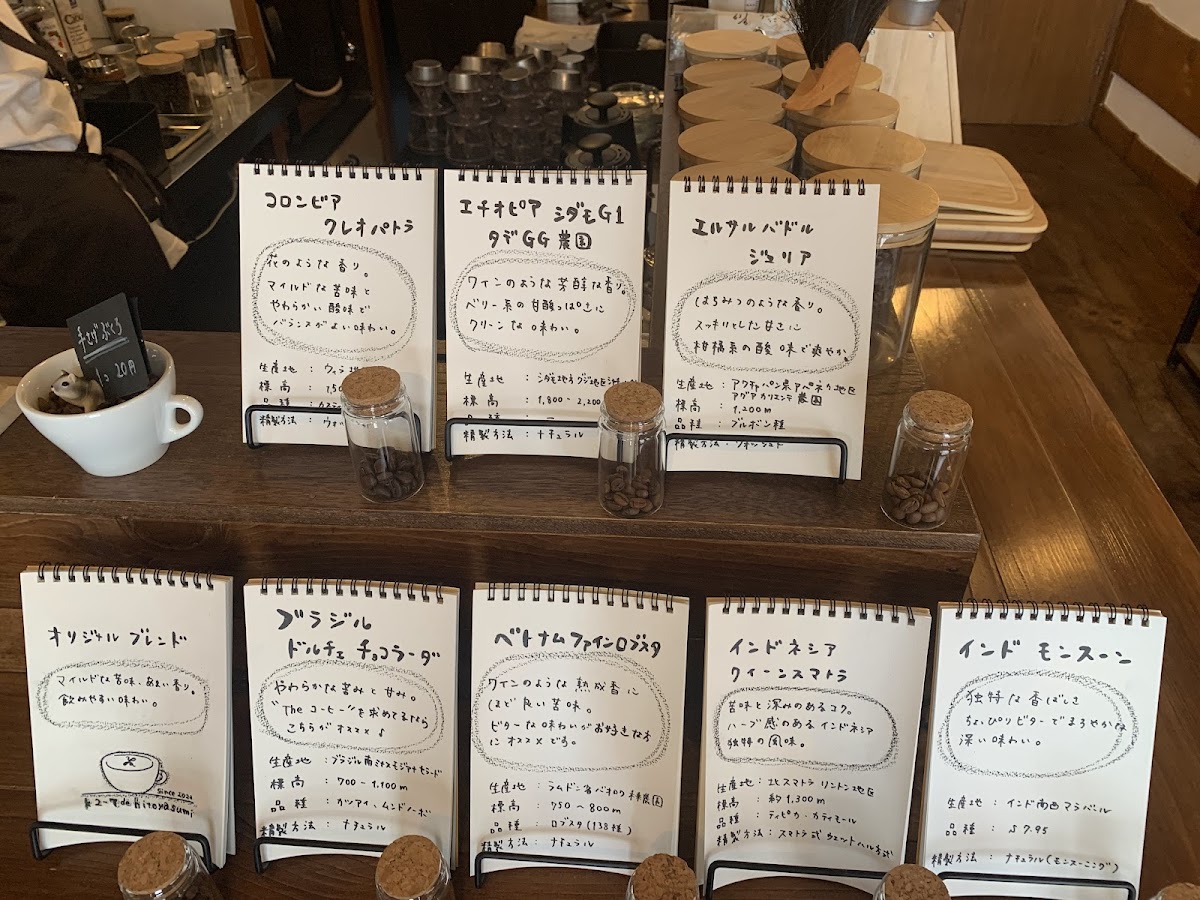 コロンビア
クレオパトラ
花のような香り。
マイルドな苦味と
やわらかい酸味と
バランスがよい味わい。
生産地：ウィラ
標高：1,50
品種：カス
精製方法：ウォ
エチオピア シダモG1
タデGG農園
ワインのような芳醇な香り。
ベリー系の甘酸っぱさに
クリーンな味わい。
生産地：シダモ地方グジ地区
標高：1,800-2,200
品種：
精製方法：ナチュラル
エルサルバドル
ジュリア
はちみつのような香り。
スッキリとした甘さに
柑橘系の酸味で爽やか。
生産地：アワチャパン県アパネカ地区
アグアカリエンテ農園
標高：1,200m
品種：ブルボン種
精製方法：ウォッシュト
手さげぶくろ
1コ 20円
オリジナルブレンド
マイルドな苦味、あまい香り。
飲みやすい味わい。
since 2021
コーヒーde hitoyasumi
ブラジル
ドルチェ チョコラータ
やわらかな苦みと甘み。
"The コーヒー"を求めてるなら
こちらがオススメ♪
生産地：ブラジル南ミナスモジアナセラード
標高：700-1,100m
品種：カツアイ、ムンドノーボ
精製方法：ナチュラル
ベトナムファインロブスタ
ワインのような熟成香に
ほど良い苦味。
ビターな味わいがお好きな方
にオススメです。
生産地：ラムドン省バオロク
標高：750〜800m
品種：ロブスタ(138種)
製方法：ナチュラル
インドネシア
クイーンスマトラ
苦味と深みのあるコク。
ハーブ感のあるインドネシア
独特の風味。
生産地：北スマトラ リントン地区
標高：約1,300m
品種：ティピカ・カティモール
精製方法：スマトラ式ウェットハル方式
インド モンスーン
独特な香ばしさ
ちょぴりビターでまろやかな
深い味わい。
生産地：インド南西マラバール
品種：S7.95
精製方法：ナチュラル(モンスーニング)